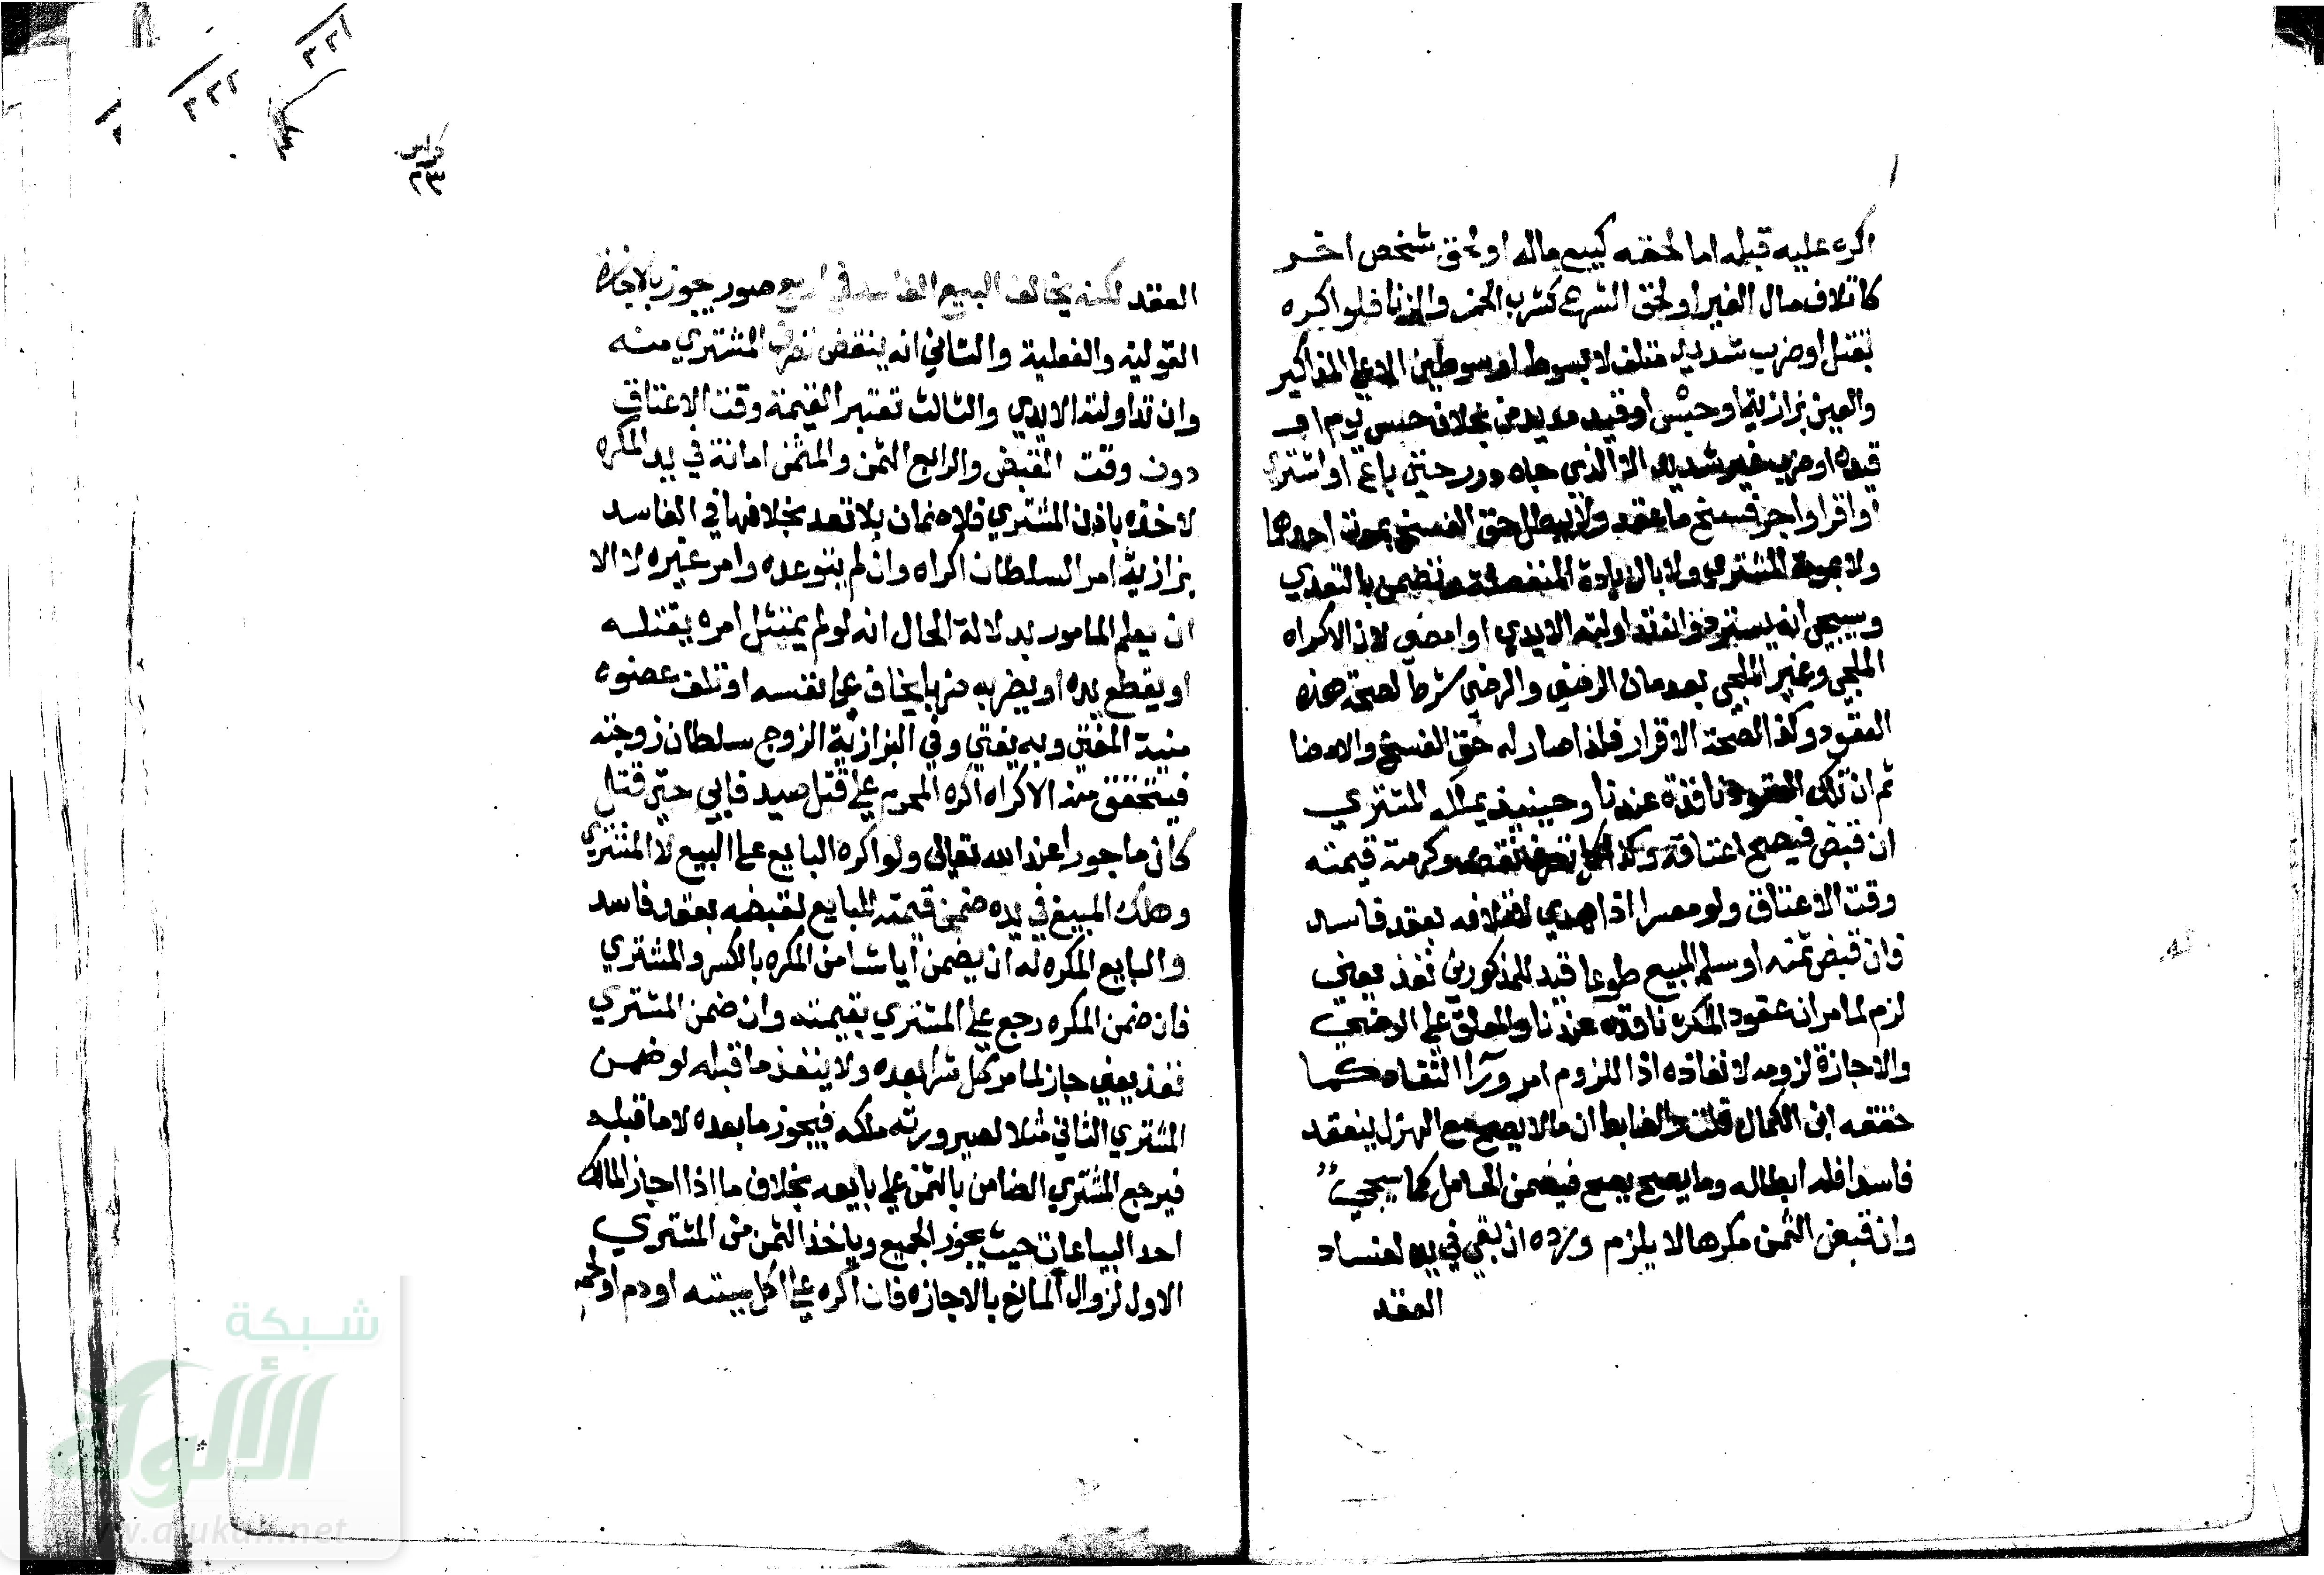 اكره عليه قبله اما لحقه كبيع ماله او لحق شخص اخر
كاتلاف مال الغير او لحق الشرع كشرب الخمر والزنا فلو اكره
بقتل او ضرب شديد متلف لا بسوط او سوطين الا على المذاكير
والعين بزازية او حبس او قيد مديدين بخلاف حبس يوم او
قيده او ضرب غير شديد الا لذي جاه دور حتى باع او اشترى
او اقر او اجر فسخ ما عقد ولا يبطل حق الفسخ بموت احدهما
ولا بموت المشتري ولا بالزيادة المنفصلة وتضمن بالتعدي
وسيجي انه يسترد وان تداولته الايدي او امضى لان الاكراه
الملجي وغير الملجي يعدمان الرضى والرضى شرط لصحة هذه
العقود وكذا لصحة الاقرار فلذا صار له حق الفسخ والامضا
ثم ان تلك العقود نافذة عندنا وحينيذ يملكه المشتري
ان قبض فيصح اعتاقه وكذا كل تصرف لا يمكن نقضه ولزمه قيمته
وقت الاعتاق ولو معسرا اذا هدي لاتلافه بعقد فاسد
فان قبض ثمنه او سلم المبيع طوعا قيد للمذكورين نفذ يعني
لزم لما مر ان عقود المكره نافذة عندنا والمعلق على الرضى
والاجازة لزومه لا نفاذه اذ اللزوم امر ورآ النفاذ كما
حققه ابن الكمال قلت والضابط ان ما لا يصح مع الهزل ينعقد
فاسدا فله ابطاله وما يصح يصح فيضمن الحامل كما سيجي
وان قبض الثمن مكرها لا يلزم ورده ان بقي في يده لفساد
العقد
كراس
٢٣
العقد لكنه يخالف البيع الفاسد في اربع صور يجوز بالاجازة
القولية والفعلية والثاني انه ينقض تصرف المشتري منه
وان تداولته الايدي والثالث تعتبر القيمة وقت الاعتاق
دون وقت القبض والرابع الثمن والمثمن امانة في يد المكره
لاخذه باذن المشتري فلا ضمان بلا تعد بخلافها في الفاسد
بزازية امر السلطان اكراه وان لم يتوعده وامر غيره لا الا
ان يعلم المامور بدلالة الحال انه لو لم يمتثل امره يقتله
او يقطع يده او يضربه ضربا يخاف على نفسه او تلف عضوه
منية المفتي وبه يفتي وفي البزازية الزوج سلطان زوجته
فيتحقق منه الاكراه اكره المحرم على قتل صيد فابي حتى قتل
كان ماجورا عند الله تعالى ولو اكره البايع على البيع لا المشتري
وهلك المبيع في يده ضمن قيمته للبايع لقبضه بعقد فاسد
والبايع المكره له ان يضمن ايا شا من المكره بالكسر والمشتري
فان ضمن المكره رجع على المشتري بقيمته وان ضمن المشتري
نفذ يعني جاز لما مر كل شرا بعده ولا ينفذ ما قبله لو ضمن
المشتري الثاني مثلا لصيرورته ملكه فيجوز ما بعده لا ما قبله
فيرجع المشتري الضامن بالثمن على بايعه بخلاف ما اذا اجاز المالك
احد البياعات حيث يجوز الجميع وياخذ الثمن من المشتري
الاول لزوال المانع بالاجازه فان اكره على اكل ميتته او دم او لحم
شبكة
الألوكة
www.alukah.net